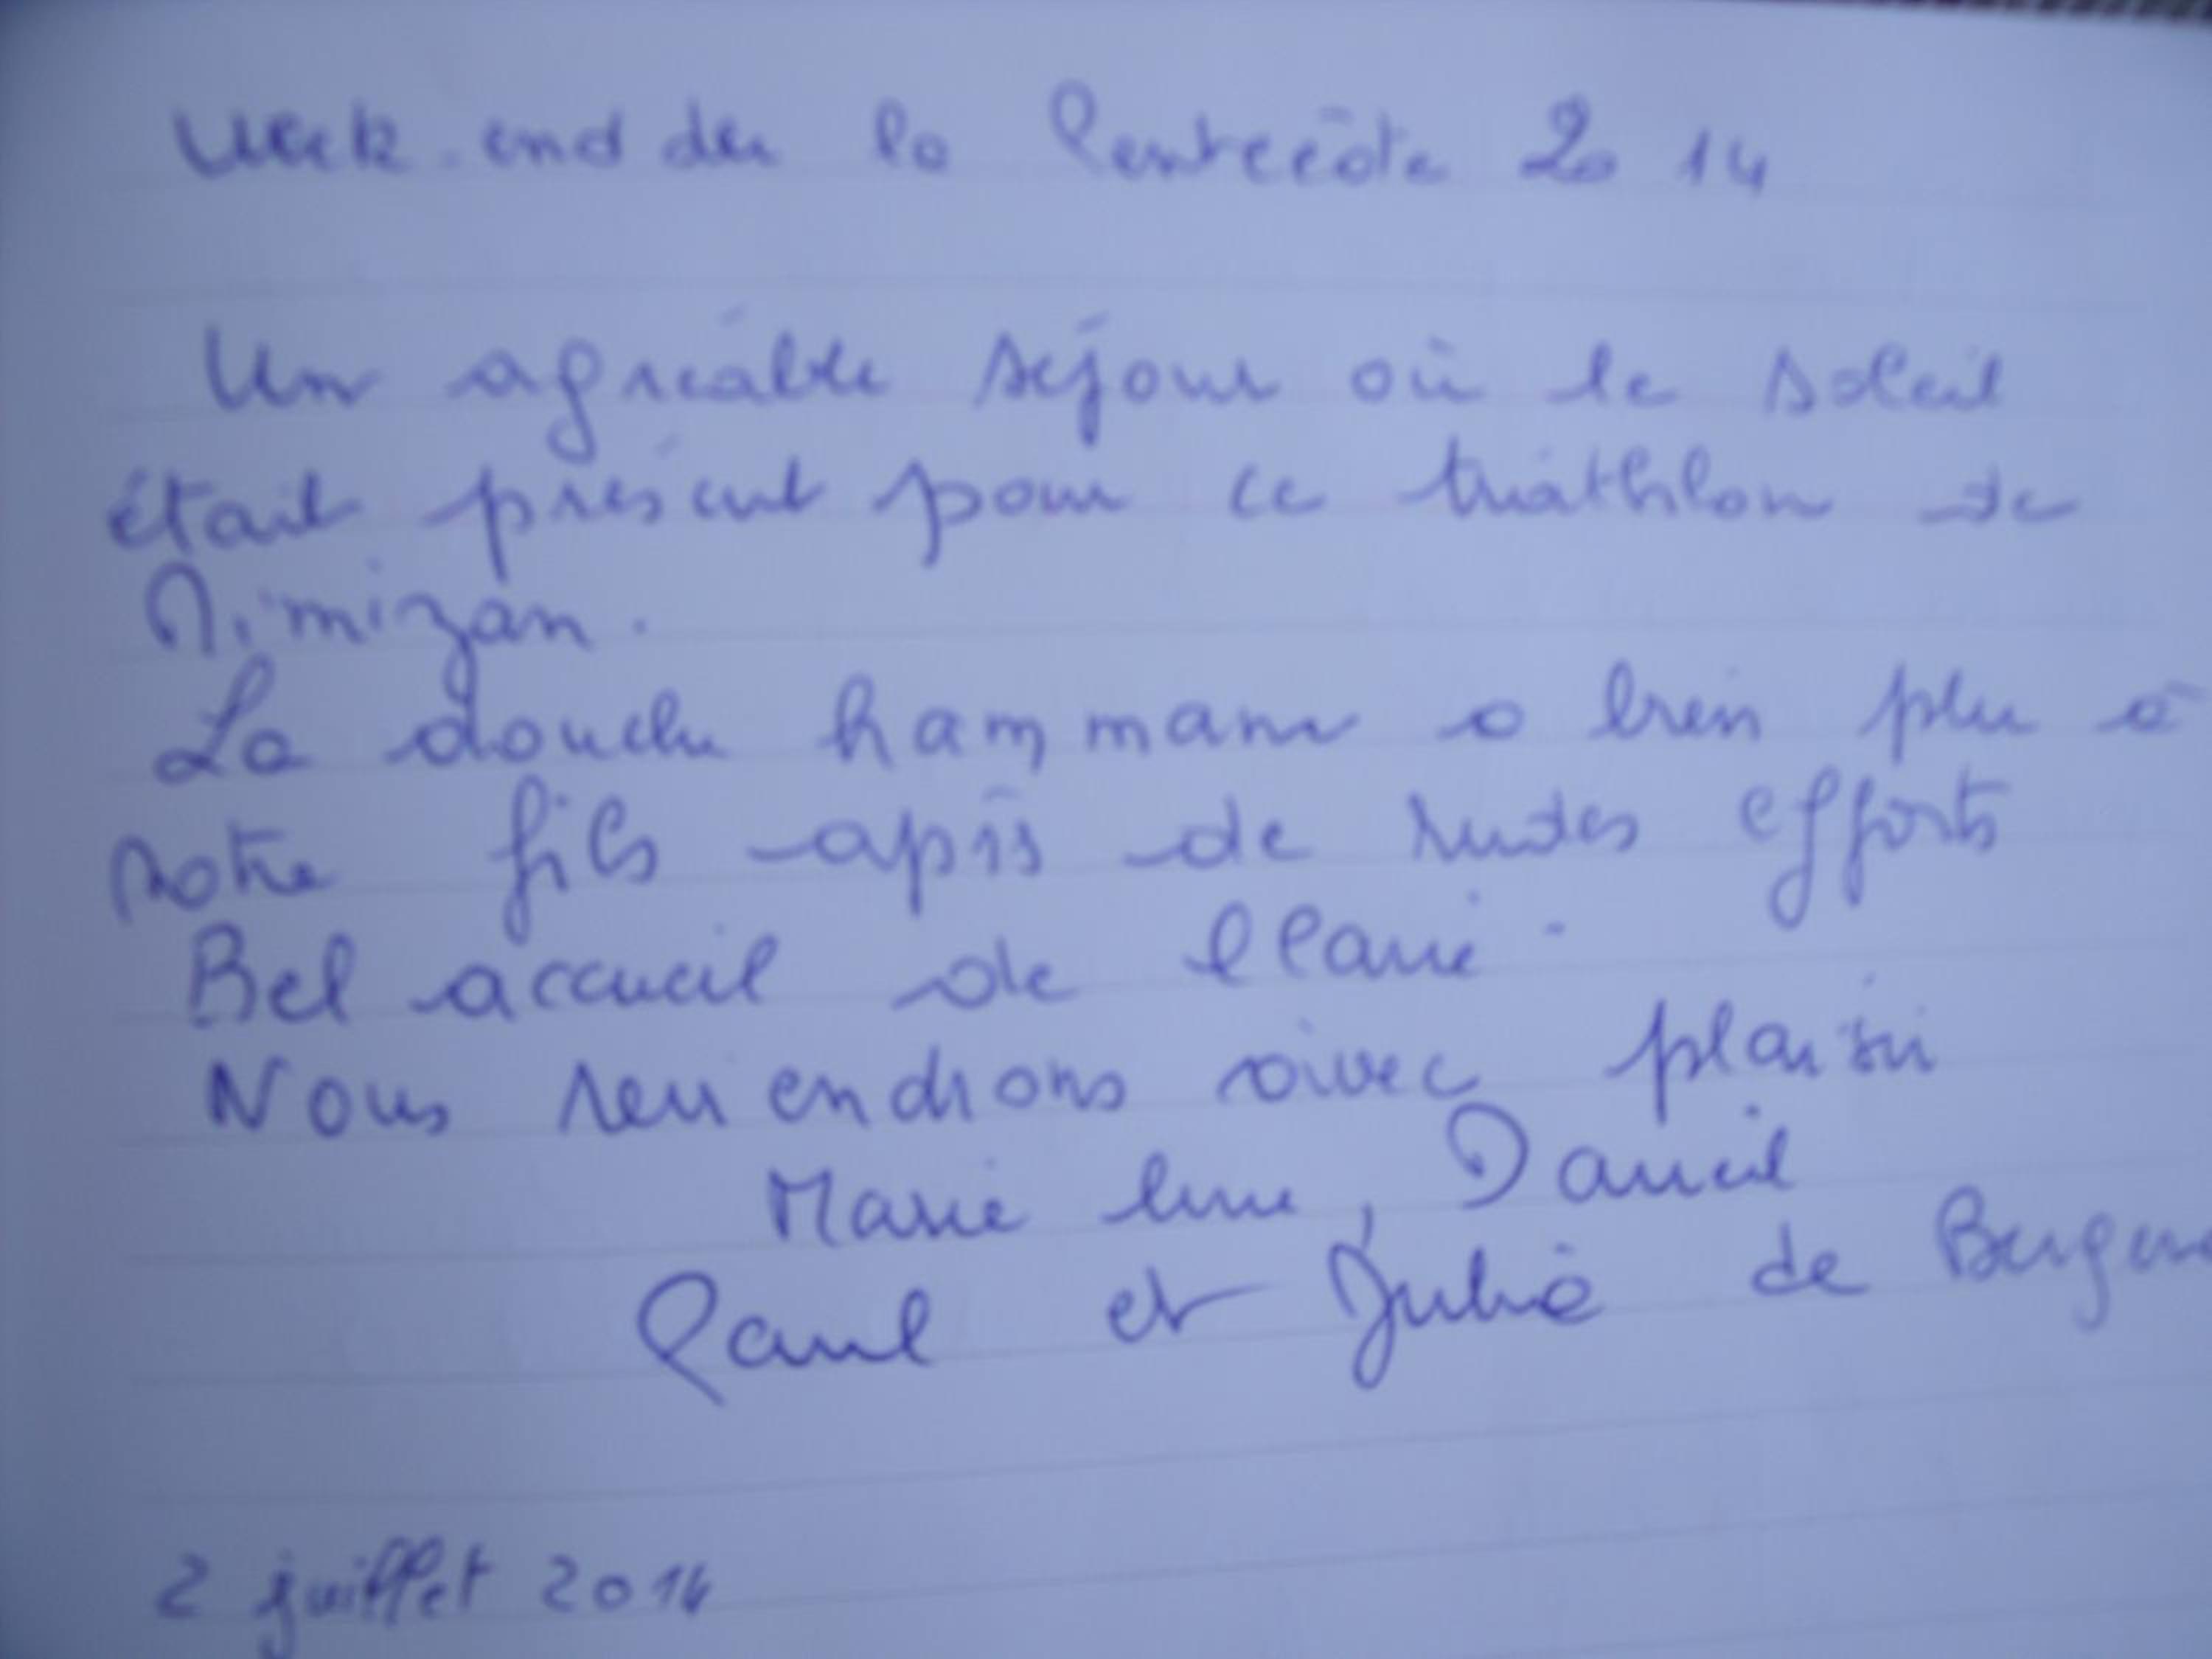 Week-end de la Pentecôte 2014
Un agréable séjour où le soleil
était présent pour ce triathlon de
Mimizan.
La douche hammam a bien plu à
notre fils après de rudes efforts
Bel accueil de Marie.
Nous reviendrons avec plaisir
Marie Line, Daniel
Paul et Julie de
2 juillet 2014